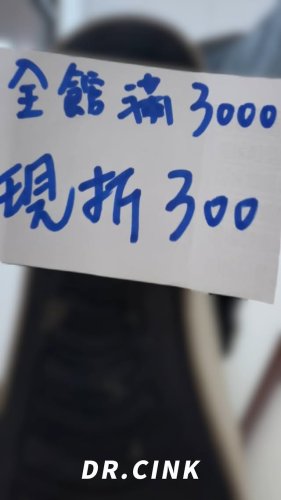 全館滿3000
現折300
DR.CINK